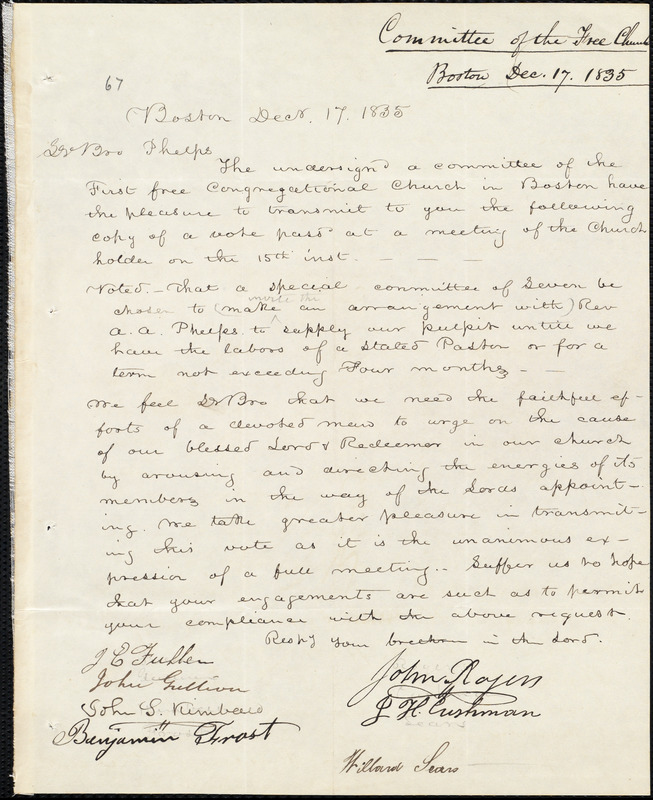 Committee of the Free Church
Boston Dec. 17. 1835
67
Boston Decr. 17. 1835
Dr Bro Phelps
The undersignd a committee of the
First free Congregational Church in Boston have
the pleasure to transmit to you the following
copy of a vote passd at a meeting of the Church
holder on the 15th inst. — — —
Voted. – that a special committee of Seven be
invite the
chosen to (make an arrangement with) Rev
A. A. Phelps. to supply our pulpit untill we
have the labors of a stated Pastor or for a
term not exceeding Four months — —
We feel Dr Bro that we need the faithful ef-
forts of a devoted man to urge on the cause
of our blessed Lord & Redeemer in our church
by arousing and directing the energies of its
members in the way of the Lords appoint-
ing. We take greater pleasure in transmit-
ing this vote as it is the unanimous ex-
pression of a full meeting.. Suffer us to hope
that your engagements are such as to permit
your compliance with the above request.
Respy your brethren in the Lord.
J E Fuller
John Gulliver
John S. Kimball
Benjamin Frost
John Rogers
J H Cushman
Willard Sears